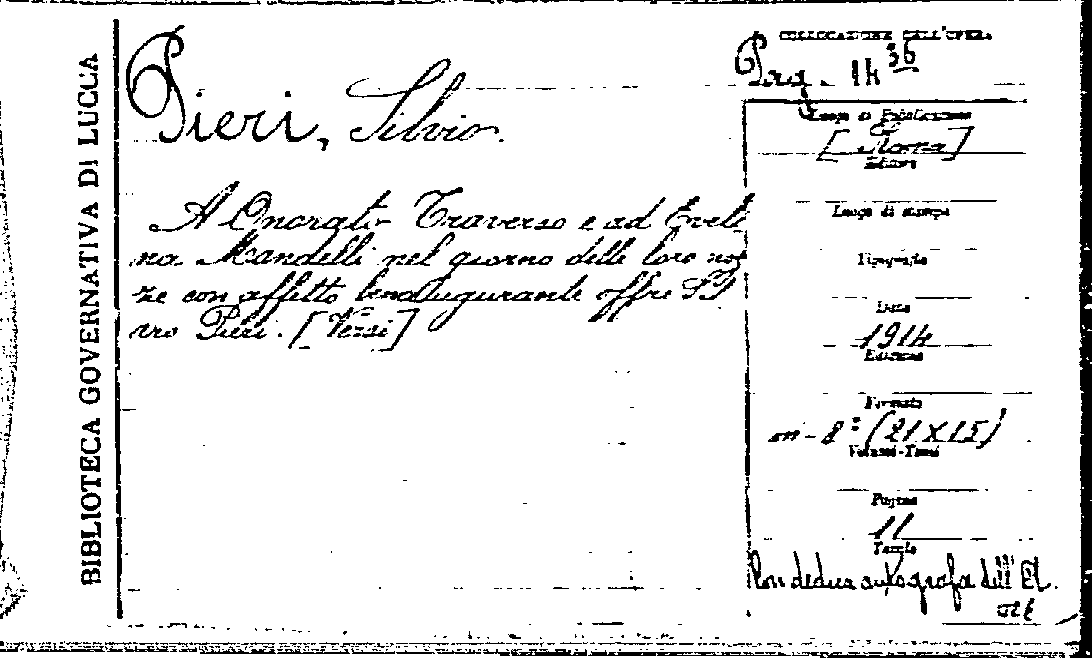 BIBLIOTECA GOVERNATIVA DI LUCCA
Pieri, Silvio.
A Onorato Traverso e ad Eveli
na Mandelli nel giorno delle loro noz
ze con affetto beneaugurante offre Sil
vio Pieri. [Versi]
COLLOCAZIONE DELL'OPERA
Pag. 14 36
Luogo di Pubblicazione
[Roma]
Editore
Luogo di stampa
Tipografia
Data
1914
Edizione
Formato
in-8° (21X15)
Volumi-Tomi
Pagine
11
Tavole
Con dedica autografa dell'